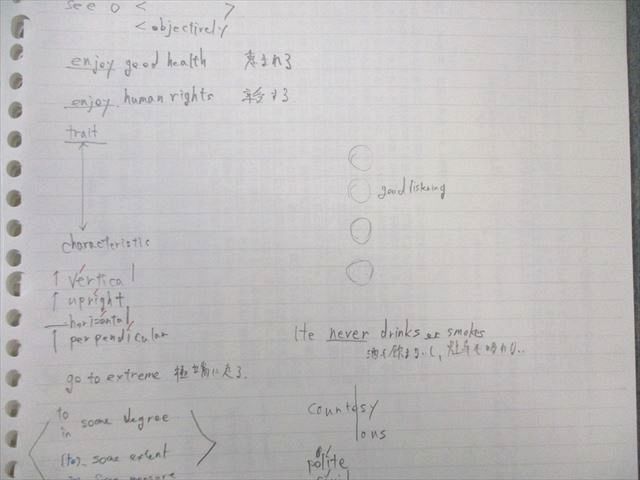 see O < >
< objectively
enjoy good health 恵まれる
enjoy human rights 享受する
trait
good listening
characteristic
vertical
upright
horizontal
perpendicular
He never drinks or smokes
go to extreme 極端に走る
to
in some degree
(to) some extent
courtesy
ous
polite